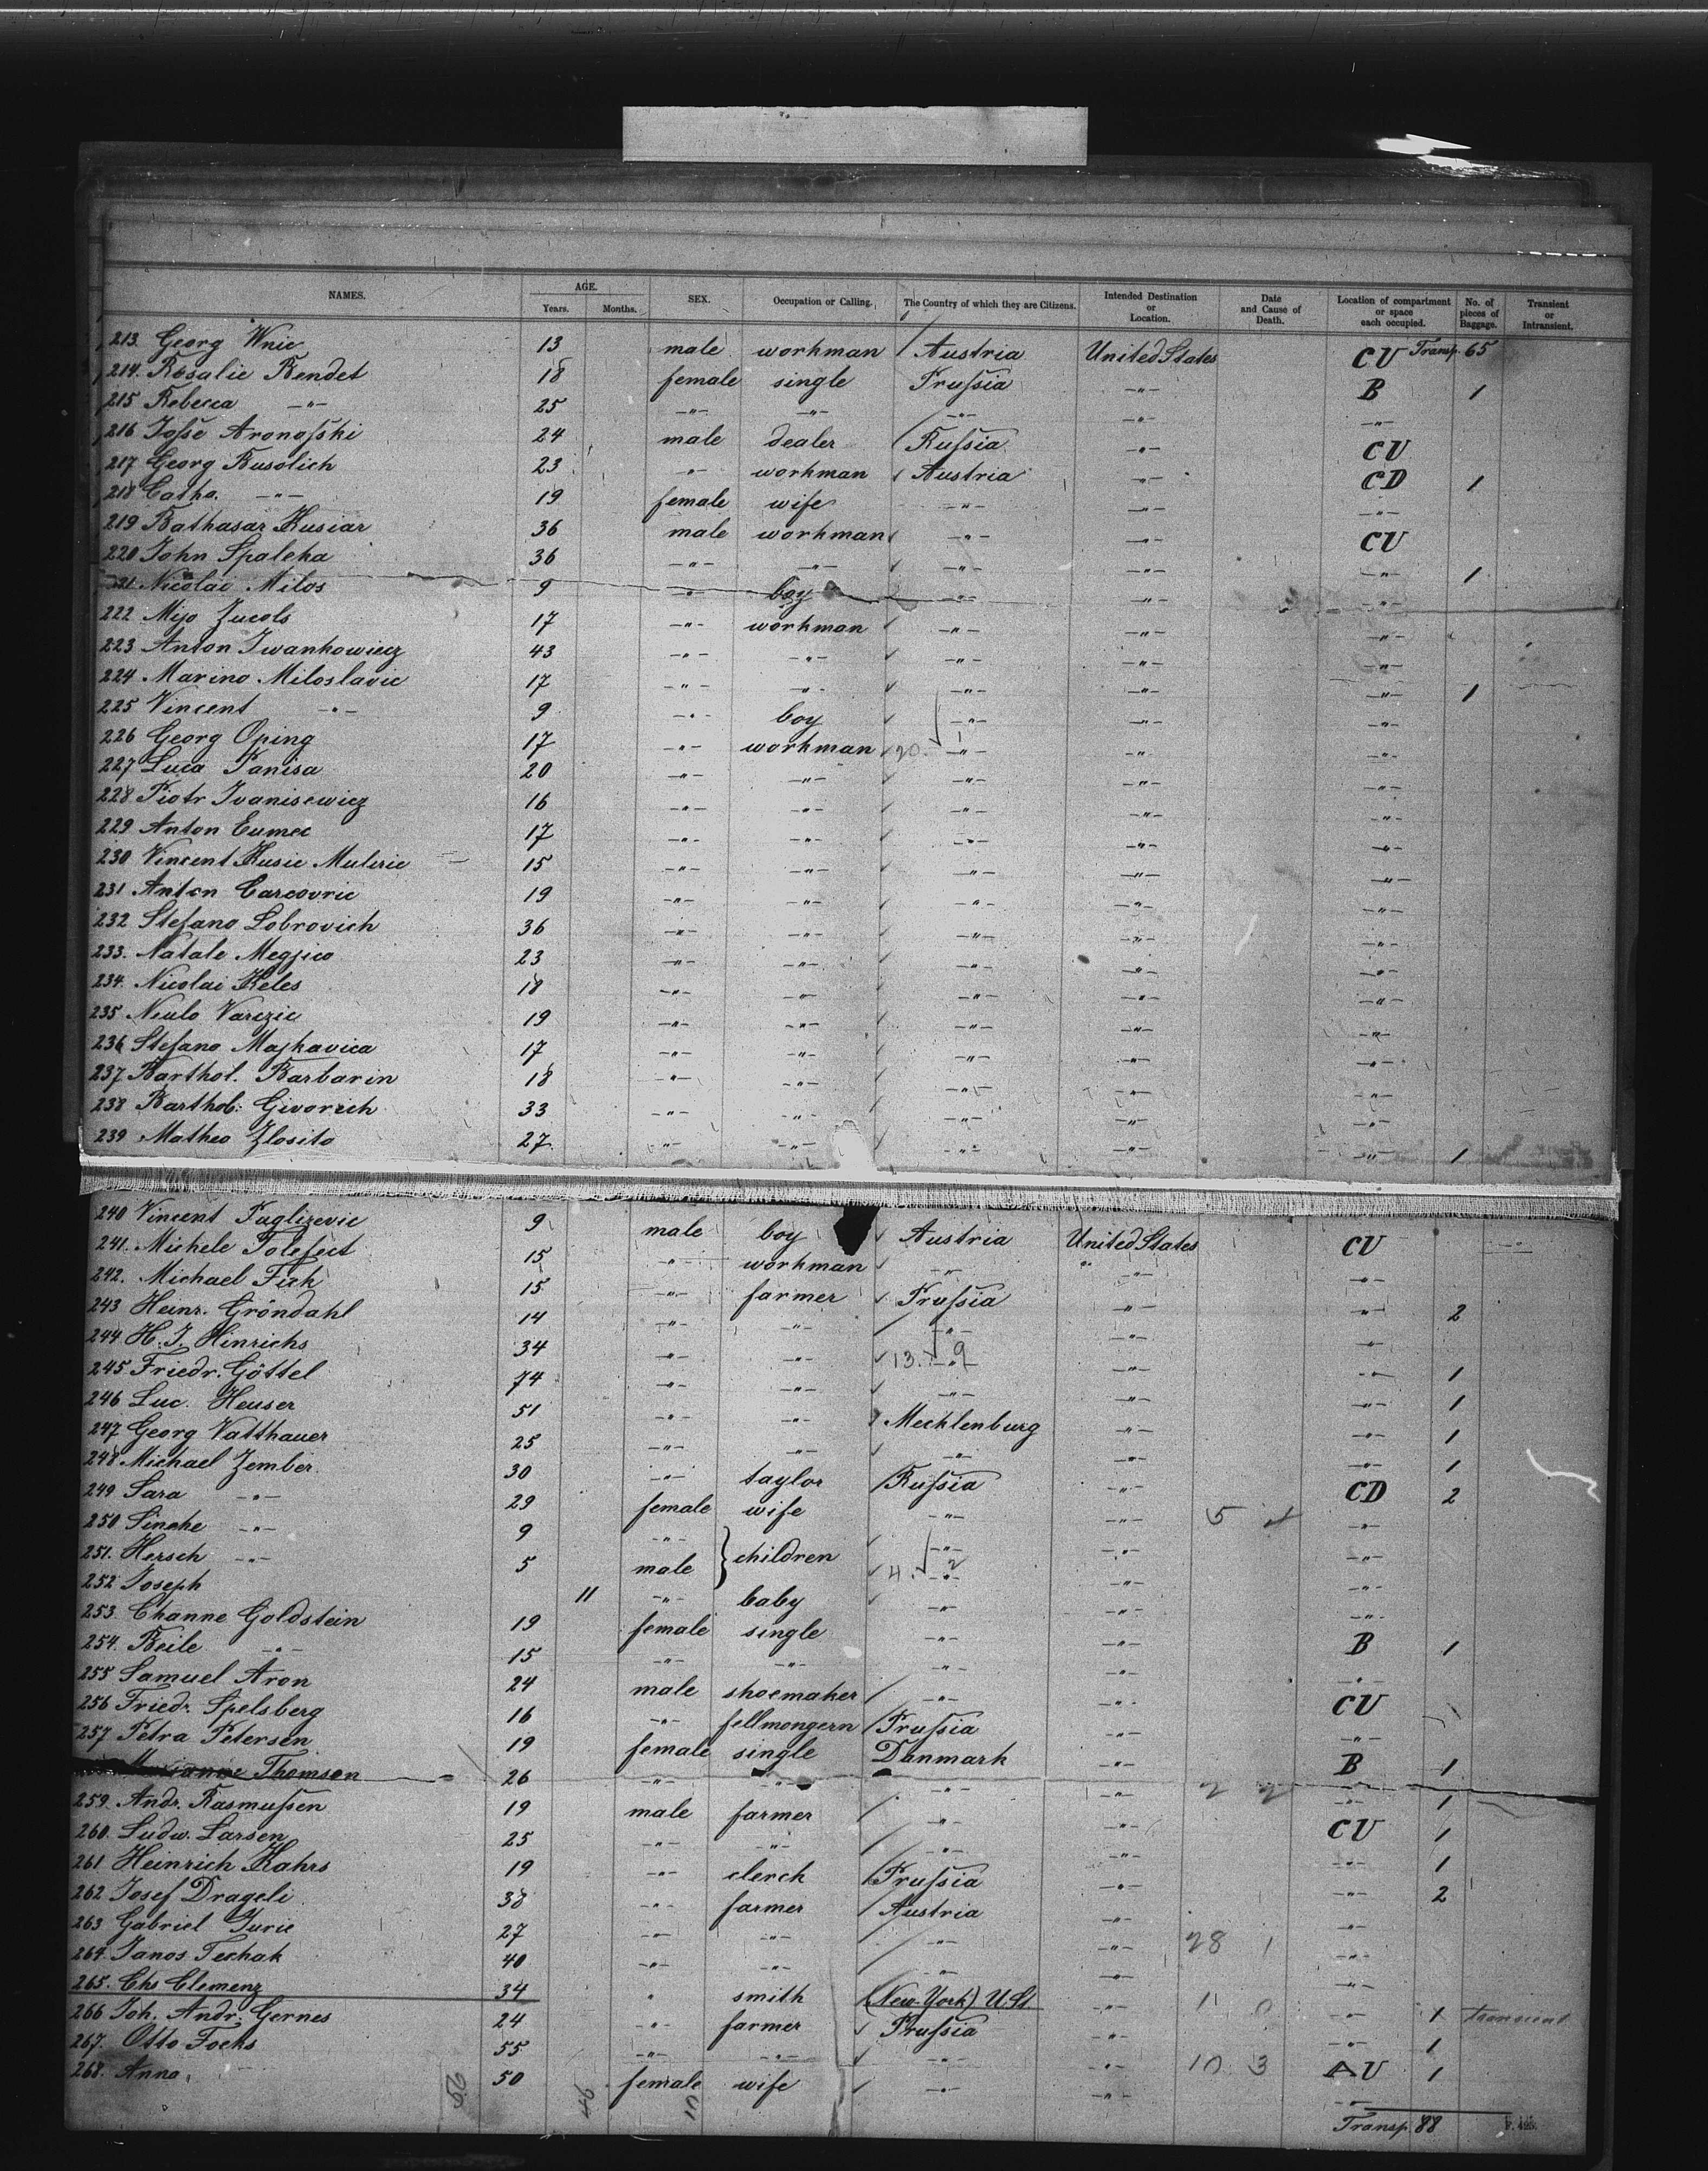 NAMES. AGE. Years. Months. SEX. Occupation or Calling. The Country of which they are Citizens. Intended Destination or Location. Date and Cause of Death. Location of compartment or space each occupied. No. of pieces of Baggage. Transient or Intransient.
213. Georg Wnic 13 male workman Austria United States CU Transp. 65
214. Rosalie Bendet 18 female single Prussia —"— B 1
215 Rebecca —"— 25 —"— —"— —"— —"— —"—
216 Josse Aronosski 24 male dealer Russia —"— CU
217 Georg Busolich 23 —"— workman Austria —"— CD 1
218 Catha. —"— 19 female wife —"— —"— —"—
219 Bathasar Kusiar 36 male workman —"— —"— CU
220 John Spaleka 36 —"— —"— —"— —"— —"— 1
221 Nicolai Milos 9 —"— boy —"— —"— —"—
222 Mijo Zucols 17 —"— workman —"— —"— —"—
223 Anton Iwankowiecz 43 —"— —"— —"— —"— —"—
224 Marino Miloslavic 17 —"— —"— —"— —"— —"— 1
225 Vincent —"— 9 —"— boy —"— —"— —"—
226 Georg Oping 17 —"— workman 20 1 —"— —"— —"—
227 Luca Panisa 20 —"— —"— —"— —"— —"—
228 Piotr Ivanisewicz 16 —"— —"— —"— —"— —"—
229 Anton Eumec 17 —"— —"— —"— —"— —"—
230 Vincent Kusic Muliric 15 —"— —"— —"— —"— —"—
231 Anton Carcovric 19 —"— —"— —"— —"— —"—
232 Stefano Lobrovich 36 —"— —"— —"— —"— —"—
233. Natale Megjico 23 —"— —"— —"— —"— —"—
234. Nicolai Keles 18 —"— —"— —"— —"— —"—
235 Niulo Varezic 19 —"— —"— —"— —"— —"—
236 Stefano Majkavica 17 —"— —"— —"— —"— —"—
237 Barthol. Barbarin 18 —"— —"— —"— —"— —"—
238 Barthol. Givorich 33 —"— —"— —"— —"— —"—
239 Matheo Zlosito 27 —"— —"— —"— —"— —"— 1
240 Vincent Puglizevic 9 male boy Austria United States CU
241. Michele Tolefect 15 —"— workman —"— —"— —"—
242. Michael Fick 15 —"— farmer Prussia —"— —"— 2
243 Heinr. Gröndahl 14 —"— —"— —"— —"— —"—
244 H. J. Hinrichs 34 —"— —"— 13. 9 —"— —"— —"— 1
245 Friedr. Göttel 74 —"— —"— —"— —"— —"— 1
246 Luc. Heuser 51 —"— —"— Mecklenburg —"— —"— 1
247 Georg Vatthauer 25 —"— —"— —"— —"— —"— 1
248 Michael Zember 30 —"— taylor Russia —"— CD 2
249 Sara —"— 29 female wife —"— —"— 5 —"—
250 Sinehe —"— 9 —"— children —"— —"— —"—
251. Hersch —"— 5 male 4. 2 —"— —"— —"—
252 Joseph 11 —"— baby —"— —"— —"—
253. Channe Goldstein 19 female single —"— —"— B 1
254. Beile —"— 15 —"— —"— —"— —"— —"—
255 Samuel Aron 24 male shoemaker —"— —"— CU
256 Friedr. Spelsberg 16 —"— fellmongern Prussia —"— —"—
257 Petra Petersen 19 female single Danmark —"— B 1
Marianne Thomsen 26 —"— —"— —"— —"— 2 2 —"— 1
259. Andr. Rasmussen 19 male farmer —"— —"— CU 1
260. Ludw. Larsen 25 —"— —"— —"— —"— —"— 1
261 Heinrich Kahrs 19 —"— clerck Prussia —"— —"— 2
262 Josef Drageli 38 —"— farmer Austria —"— —"—
263 Gabriel Juric 27 —"— —"— —"— —"— 28 1 —"—
264. Janos Techak 40 —"— —"— —"— —"— —"—
265. Chs Clemenz 34 " smith (New-York) U.St. —"— 1 0 —"— 1 transient
266 Joh. Andr. Gernes 24 —"— farmer Prussia —"— —"— 1
267. Otto Focks 55 —"— —"— —"— —"— 10 3 AU 1
268. Anna 50 female wife —"— —"— —"—
Transp. 88